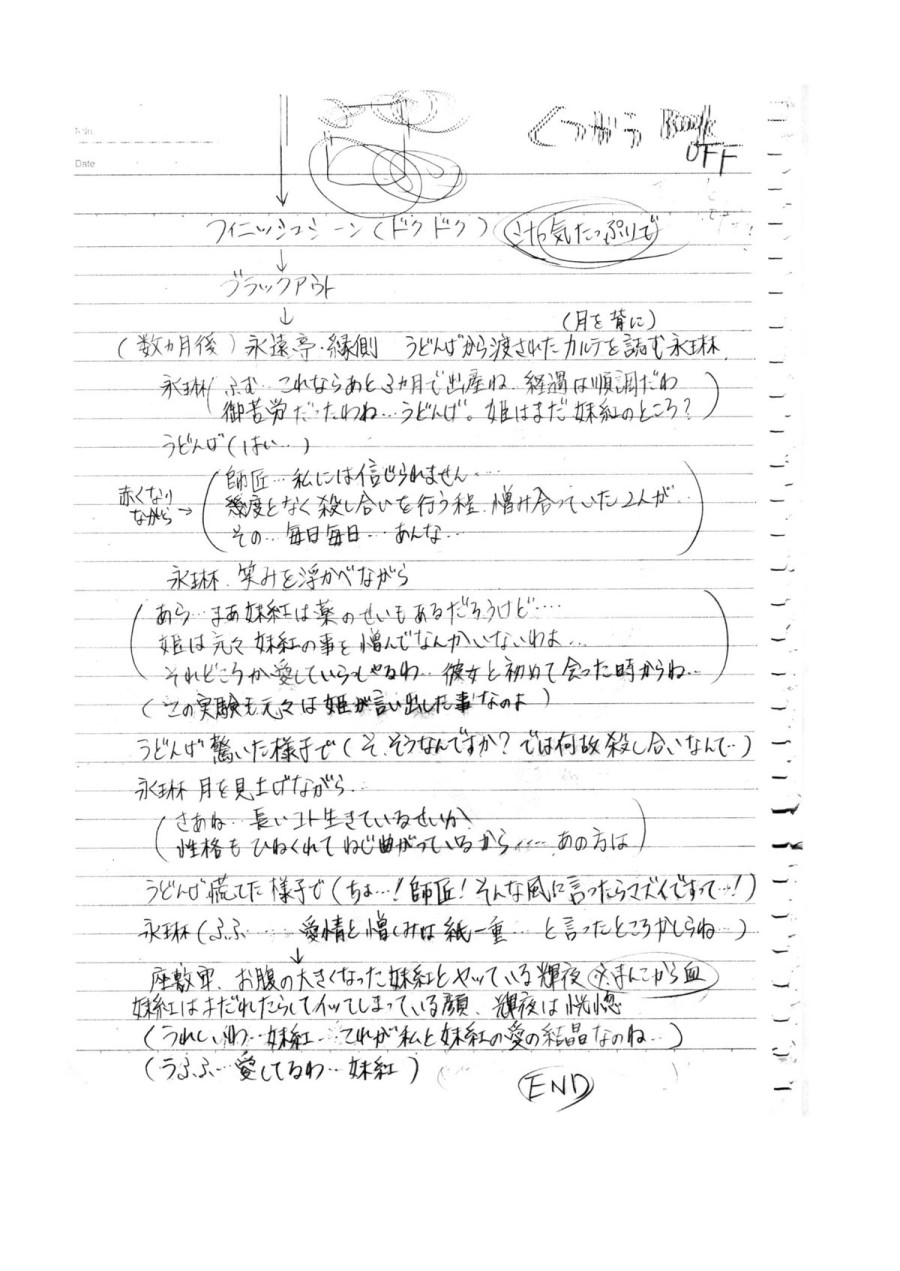 Date
くつがら
OFF
フィニッシュシーン(ドクドク)
気たっぷりで
↓
ブラックアウト
↓
(月を背に)
(数ヵ月後)永遠亭・縁側 うどんげから渡されたカルテを読む永琳
永琳(ふむ…これならあと3カ月で出産ね 経過は順調だわ
御苦労だったわね…うどんげ。姫はまだ妹紅のところ?)
うどんげ(はい…)
赤くなり
ながら→
(師匠…私には信じられません…
幾度となく殺し合いを行う程、憎み合っていた2人が
その…毎日毎日…あんな…)
永琳、笑みを浮かべながら
(あら…まあ妹紅は薬のせいもあるだろうけど…
姫は元々妹紅の事を憎んでなんかいないわよ…
それどころか愛していらっしゃるわ…彼女と初めて会った時からね…)
(この実験も元々は姫が言い出した事なのよ)
うどんげ驚いた様子で(そ、そうなんですか?では何故殺し合いなんて…)
永琳 月を見上げながら…
(さあね…長いコト生きているせいか、
性格もひねくれてねじ曲がっているから……あの方は)
うどんげ慌てた様子で(ちょ…!師匠!そんな風に言ったらマズイですって…!)
永琳(ふふ……愛情と憎しみは紙一重…と言ったところかしらね…)
↓
座敷牢、お腹の大きくなった妹紅とヤッている輝夜 ※まんこから血
妹紅はまだれたらしてイッてしまっている顔、輝夜は恍惚
(うれしいわ…妹紅…これが私と妹紅の愛の結晶なのね…)
(うふふ…愛してるわ…妹紅)
END